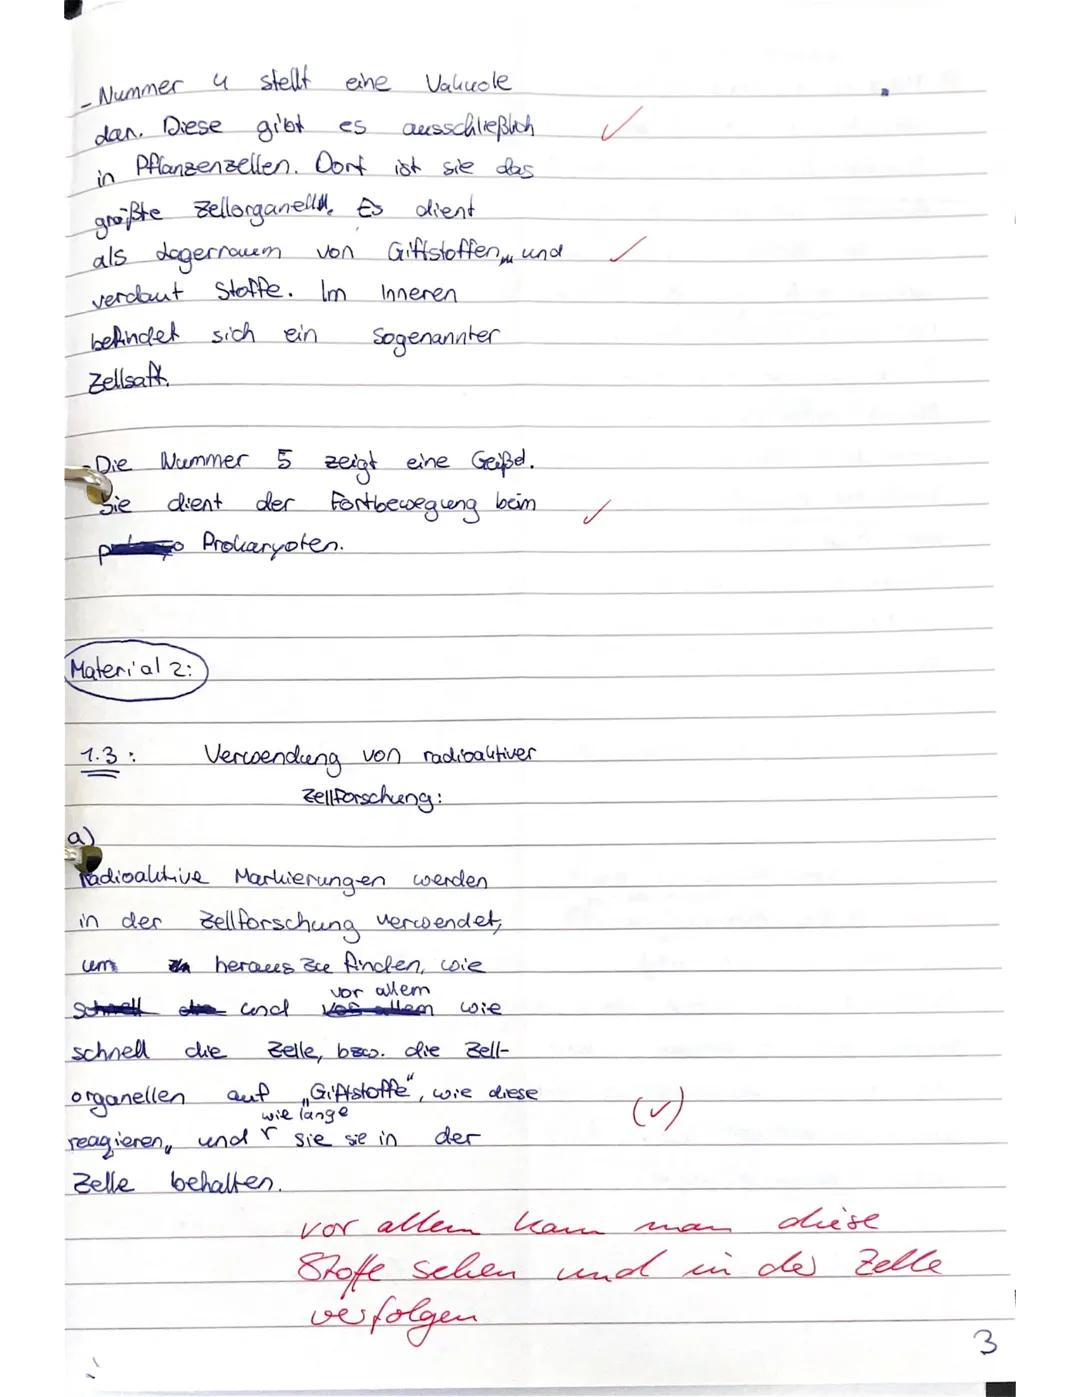 - Nummer 4 stellt eine Vakuole
dar. Diese gibt es ausschließlich
in Pflanzenzellen. Dort ist sie das
größte Zellorganell. Es dient
als Lagerraum von Giftstoffen und
verdaut Stoffe. Im Inneren
befindet sich ein sogenannter
Zellsaft.
- Die Nummer 5 zeigt eine Geißel.
Sie dient der Fortbewegung beim
Prokaryoten.
Material 2:
1.3: Verwendung von radioaktiver
Zellforschung:
a)
radioaktive Markierungen werden
in der Zellforschung verwendet,
um heraus zu finden, wie
schnell und vor allem wie
schnell die Zelle, bzw. die Zell-
organellen auf „Giftstoffe", wie diese
reagieren, und wie lange sie sie in der
Zelle behalten.
vor allem kann man diese
Stoffe sehen und in der Zelle
verfolgen
3